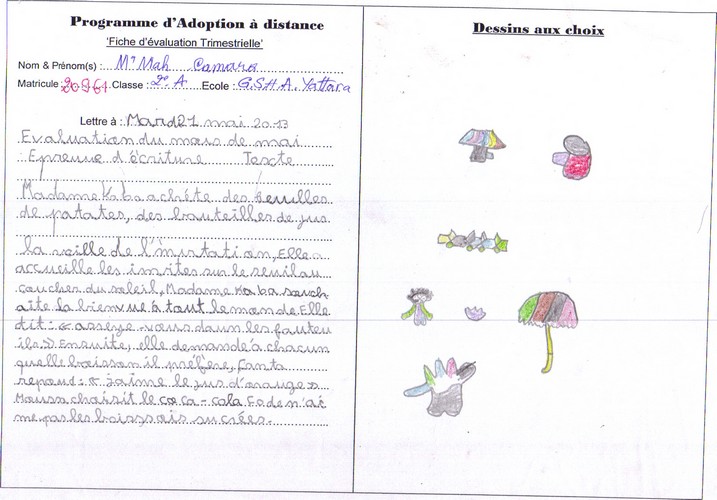 Programme d'Adoption à distance
'Fiche d'évaluation Trimestrielle'
Nom & Prénom(s) : Mr Mah Camara
Matricule : 20961 Classe : 2e A Ecole : G.SH.A. Yattara
Lettre à : Mardi 21 mai 2013
Evaluation du mois de mai
Epreuve d'écriture Texte
Madame Kaba achète des feuilles
de patates, des bouteilles de jus
la veille de l'invitation, Elle
accueille les invités sur le seuil au
coucher du soleil, Madame Kaba souh
aite la bienvenue à tout le monde. Elle
dit : « asseye vous dans les fauteu
ils » Ensuite, elle demande à chacun
quelle boisson il préfère, Fanta
repond : « J'aime le jus d'orange »
Moussa choisit le coca-cola. Fode n'ai
me pas les boissons sucrées.
Dessins aux choix